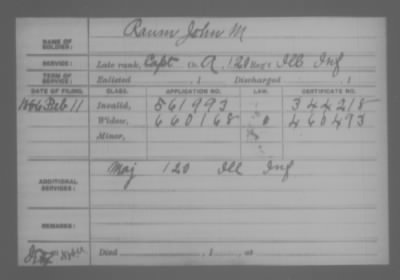 NAME OF SOLDIER: Raum John M
SERVICE: Late rank, Capt Co. A, 120 Reg't Ill Inf
TERM OF SERVICE: Enlisted , 1 Discharged , 1
DATE OF FILING. CLASS. APPLICATION NO. LAW. CERTIFICATE NO.
1886 Feb 11 Invalid, 561993 344218
Widow, 660168 460493
Minor,
ADDITIONAL SERVICES: Maj 120 Ill Inf
REMARKS:
Died , 1 , at